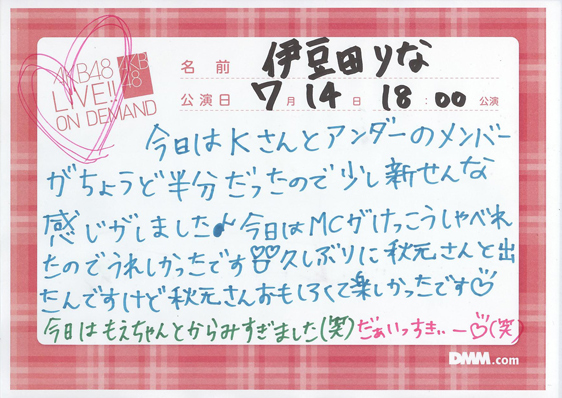 AKB48
LIVE!!
ON DEMAND
AKB
48
名前 伊豆田りな
公演日 7月14日 18:00公演
今日はKさんとアンダーのメンバー
がちょうど半分だったので少し新せんな
感じがしました♪今日はMCがけっこうしゃべれ
たのでうれしかったです♡♡久しぶりに秋元さんと出
たんですけど秋元さんおもしろくて楽しかったです♡
今日はもえちゃんとからみすぎました(笑)だぁいっすきぃー♡(笑)
DMM.com